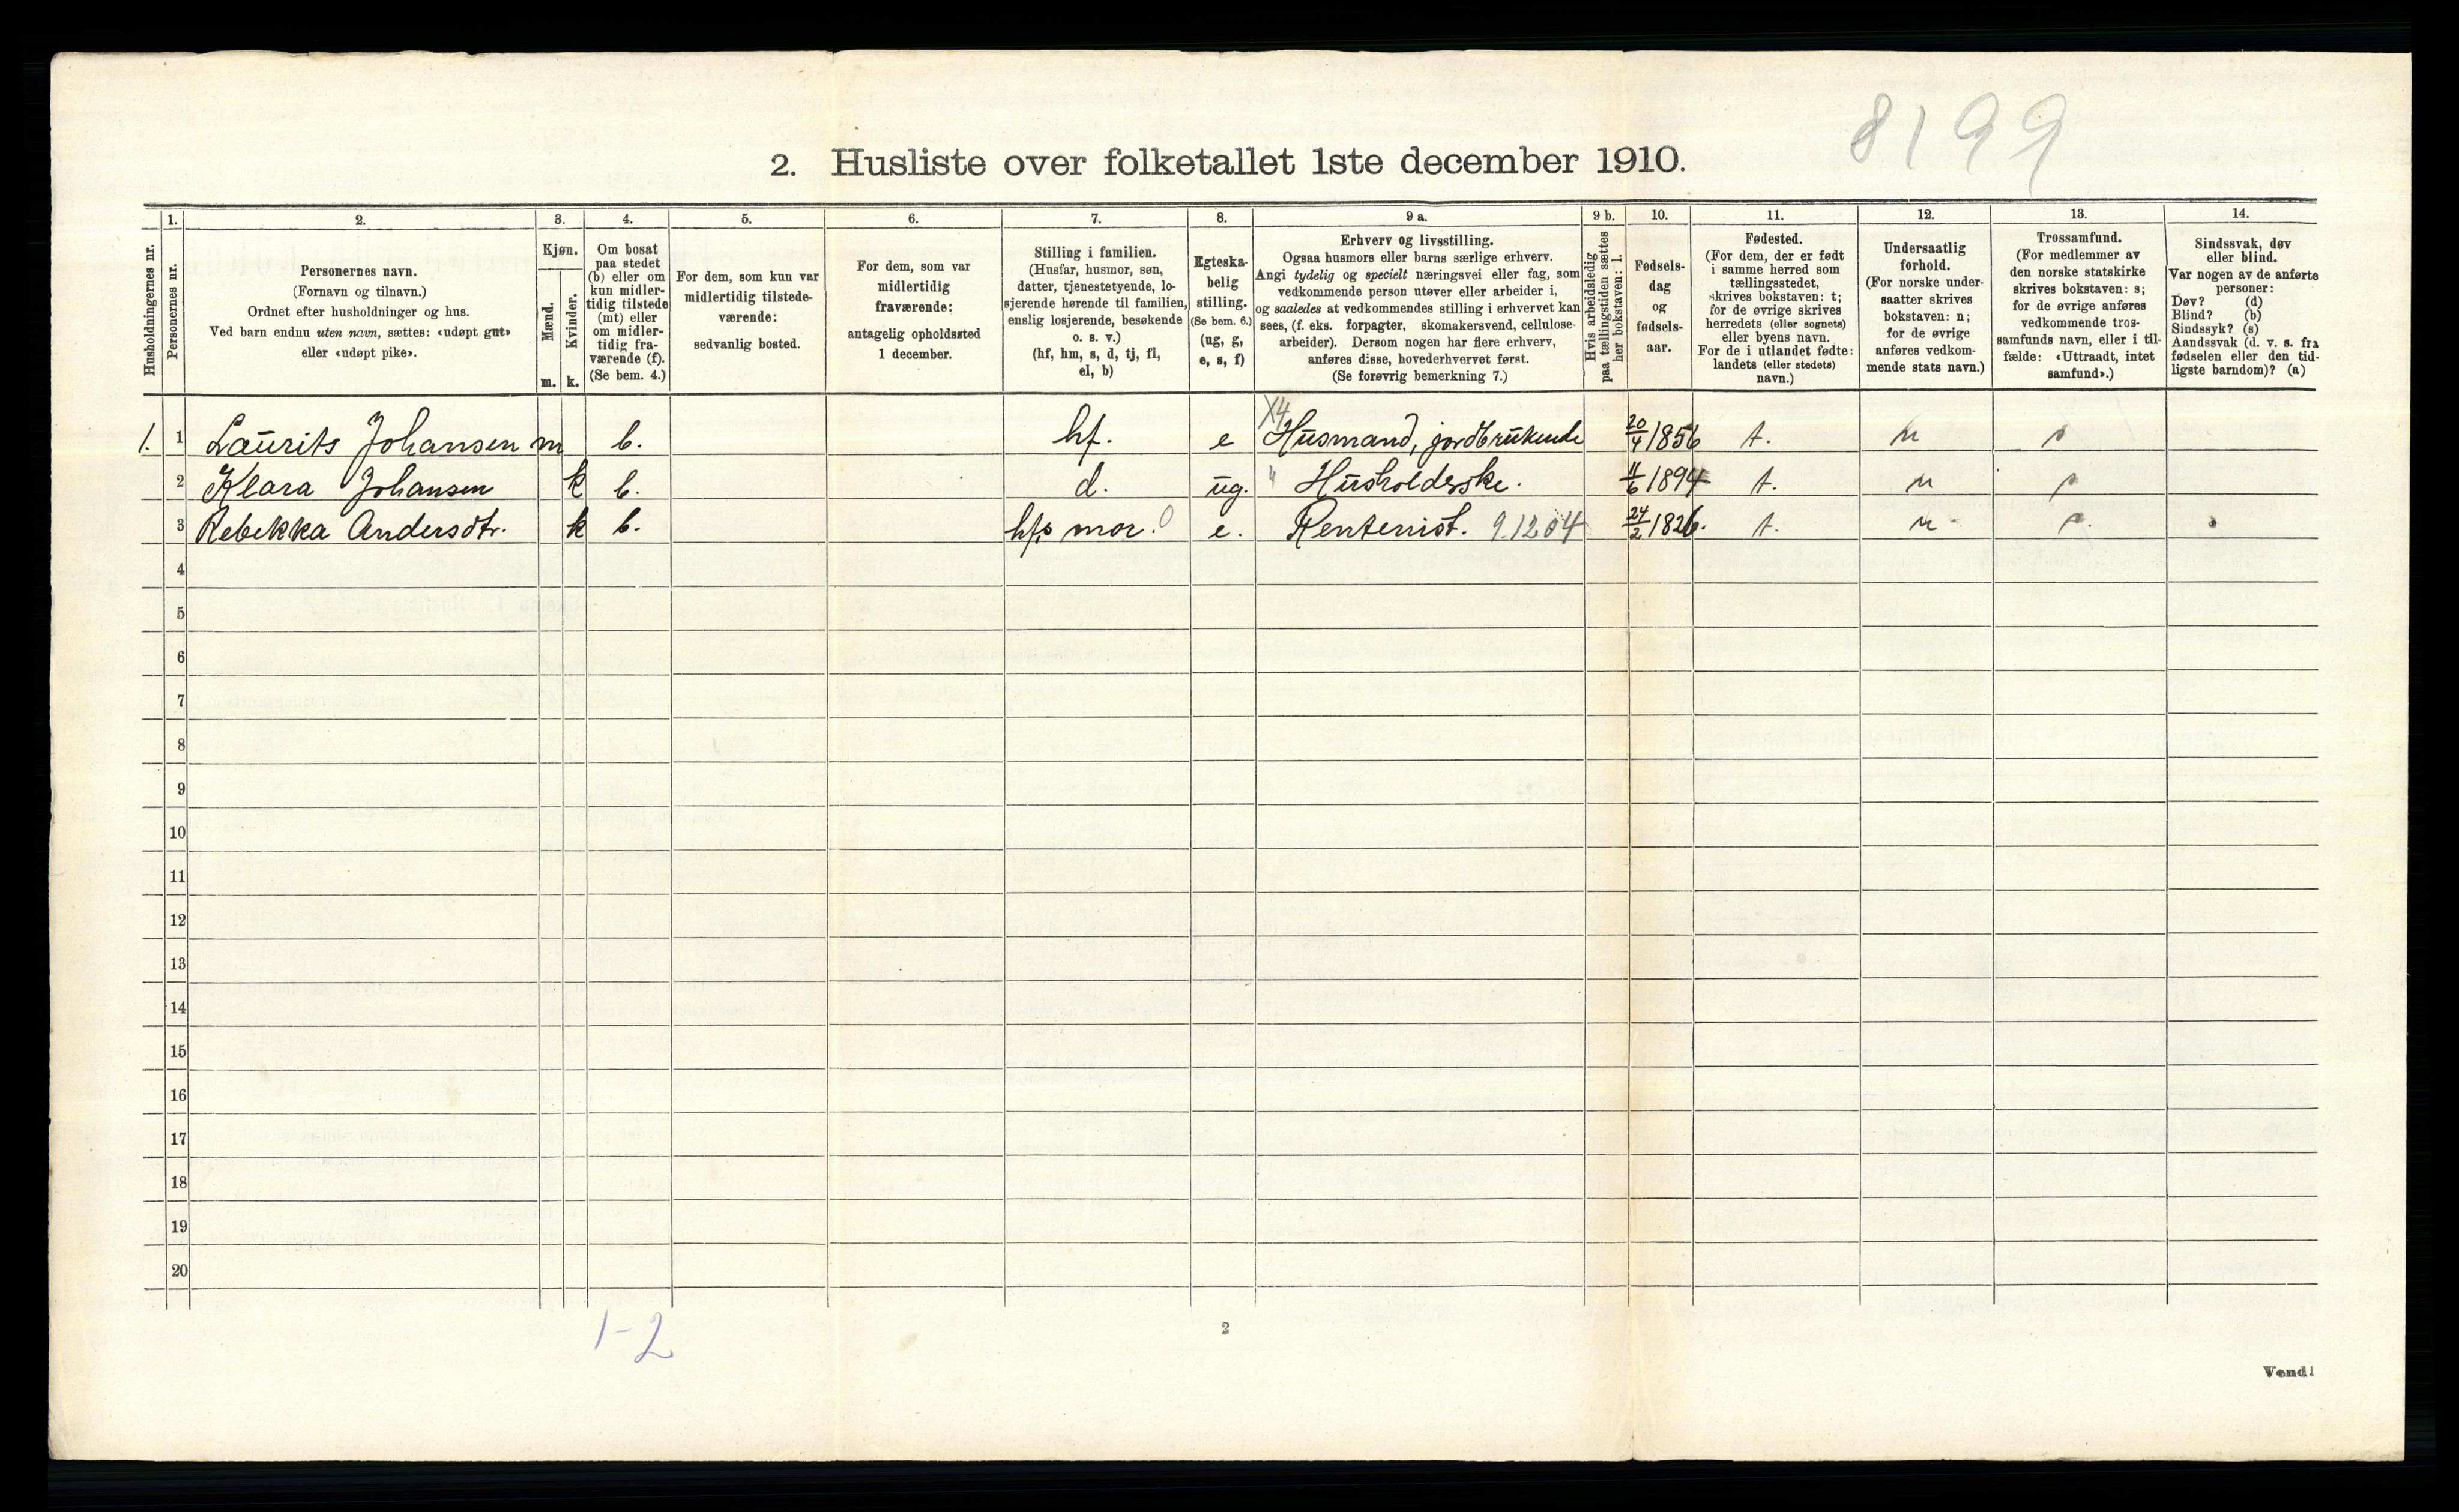 8199
2. Husliste over folketallet 1ste december 1910.
Husholdningernes nr.
1.
Personernes nr.
2.
Personernes navn.
(Fornavn og tilnavn.)
Ordnet efter husholdninger og hus.
Ved barn endnu uten navn, sættes: «udøpt gut»
eller «udøpt pike».
3.
Kjøn.
Mænd.
Kvinder.
m. k.
4.
Om bosat
paa stedet
(b) eller om
kun midler-
tidig tilstede
(mt) eller
om midler-
tidig fra-
værende (f).
(Se bem. 4.)
5.
For dem, som kun var
midlertidig tilstede-
værende:
sedvanlig bosted.
6.
For dem, som var
midlertidig
fraværende:
antagelig opholdssted
1 december.
7.
Stilling i familien.
(Husfar, husmor, søn,
datter, tjenestetyende, lo-
sjerende hørende til familien,
enslig losjerende, besøkende
o. s. v.)
(hf, hm, s, d, tj, fl,
el, b)
8.
Egteska-
belig
stilling.
(Se bem. 6.)
(ug, g,
e, s, f)
9 a.
Erhverv og livsstilling.
Ogsaa husmors eller barns særlige erhverv.
Angi tydelig og specielt næringsvei eller fag, som
vedkommende person utøver eller arbeider i,
og saaledes at vedkommendes stilling i erhvervet kan
sees, (f. eks. forpagter, skomakersvend, cellulose-
arbeider). Dersom nogen har flere erhverv,
anføres disse, hovederhvervet først.
(Se forøvrig bemerkning 7.)
9 b.
Hvis arbeidsledig
paa tællingstiden sættes
her bokstaven: l.
10.
Fødsels-
dag
og
fødsels-
aar.
11.
Fødested.
(For dem, der er født
i samme herred som
tællingsstedet,
skrives bokstaven: t;
for de øvrige skrives
herredets (eller sognets)
eller byens navn.
For de i utlandet fødte:
landets (eller stedets)
navn.)
12.
Undersaatlig
forhold.
(For norske under-
saatter skrives
bokstaven: n;
for de øvrige
anføres vedkom-
mende stats navn.)
13.
Trossamfund.
(For medlemmer av
den norske statskirke
skrives bokstaven: s;
for de øvrige anføres
vedkommende tros-
samfunds navn, eller i til-
fælde: «Uttraadt, intet
samfund».)
14.
Sindssvak, døv
eller blind.
Var nogen av de anførte
personer:
Døv? (d)
Blind? (b)
Sindssyk? (s)
Aandssvak (d. v. s. fra
fødselen eller den tid-
ligste barndom)? (a)
X4
1. 1 Laurits Johansen m b. hf. e Husmand, jordbrukende 20/4 1856 t. n s
2 Klara Johansen k b. d. ug. " Husholderske. 11/6 1894 t. n s
3 Rebekka Andersdtr. k b. hfs mor. 0 e. Rentenist. 9.1204 24/2 1826. t. n s.
4
5
6
7
8
9
10
11
12
13
14
15
16
17
18
19
20
1-2
2
Vend!